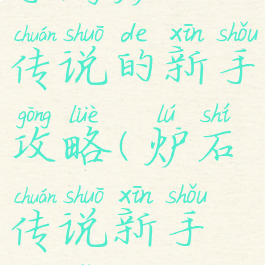 chuán shuō de xīn shǒu
传说的新手
gōng lüè lú shí
攻略(炉石
chuán shuō xīn shǒu
传说新手